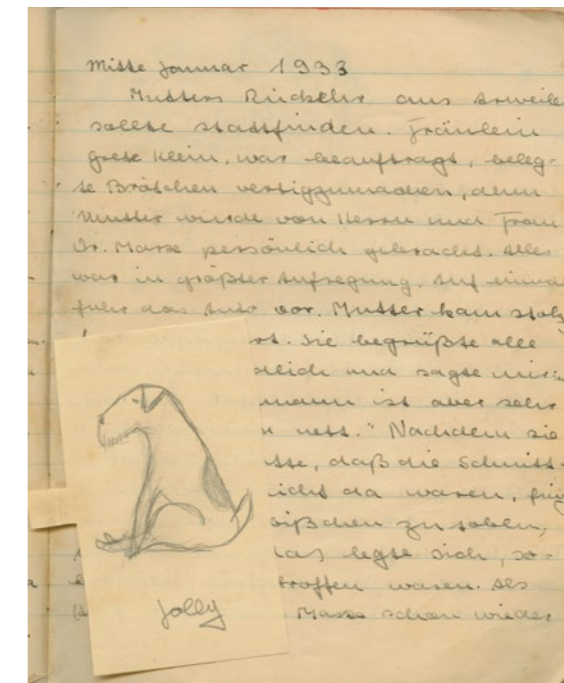 Mitte Januar 1933
Mutters Rückkehr aus Arweile
sollte stattfinden. Fräulein
Grete Klein, war beauftragt, beleg-
te Brötchen fertigzumachen, denn
Mutter wurde von Herrn und Frau
Dr. Marse persönlich gebracht. Alles
war in größter Aufregung. Auf einmal
fuhr das Auto vor. Mutter kam stolz
Sie begrüßte alle
und sagte
mann ist aber sehr
nett." Nachdem sie
daß die Schnitt-
da waren, fing
bißchen zu toben,
das legte sich, so-
troffen waren. Als
Marse schon wieder
Jolly